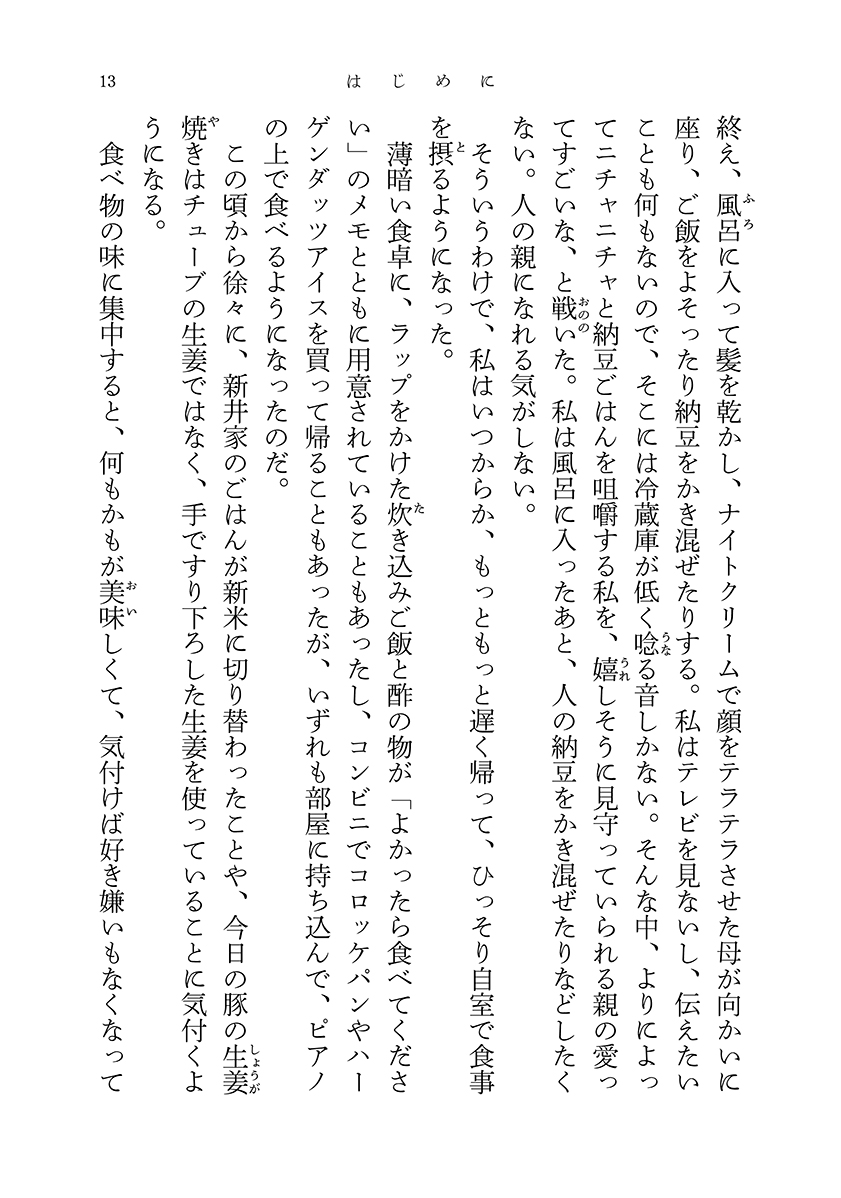 13
はじめに
終え、風呂に入って髪を乾かし、ナイトクリームで顔をテラテラさせた母が向かいに
座り、ご飯をよそったり納豆をかき混ぜたりする。私はテレビを見ないし、伝えたい
ことも何もないので、そこには冷蔵庫が低く唸る音しかない。そんな中、よりによっ
てニチャニチャと納豆ごはんを咀嚼する私を、嬉しそうに見守っていられる親の愛っ
てすごいな、と戦いた。私は風呂に入ったあと、人の納豆をかき混ぜたりなどしたく
ない。人の親になれる気がしない。
そういうわけで、私はいつからか、もっともっと遅く帰って、ひっそり自室で食事
を摂るようになった。
薄暗い食卓に、ラップをかけた炊き込みご飯と酢の物が「よかったら食べてくださ
い」のメモとともに用意されていることもあったし、コンビニでコロッケパンやハー
ゲンダッツアイスを買って帰ることもあったが、いずれも部屋に持ち込んで、ピアノ
の上で食べるようになったのだ。
この頃から徐々に、新井家のごはんが新米に切り替わったことや、今日の豚の生姜
焼きはチューブの生姜ではなく、手ですり下ろした生姜を使っていることに気付くよ
うになる。
食べ物の味に集中すると、何もかもが美味しくて、気付けば好き嫌いもなくなって